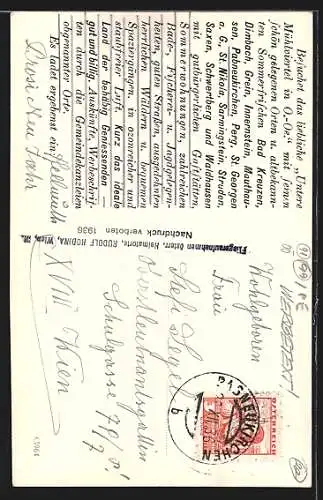 Besuchet das liebliche „Untere
Mühlviertel in O.-Oe" mit seinen
schön gelegenen Orten u. altbekann-
ten Sommerfrischen Bad Kreuzen,
Dimbach, Grein, Innernstein, Mauthau-
sen, Pabneukirchen, Perg, St. Georgen
a. G., St. Nikola, Sarmingstein, Struden,
Saxen, Schwertberg und Waldhausen
mit gutbürgerlichen Gaststätten,
Sommerwohnungen, zahlreichen
Bade-, Fischerei- u. Jagdgelegen-
heiten, guten Straßen, ausgedehnten
herrlichen Wäldern u. bequemen
Spaziergängen, in ozonreicher und
staubfreier Luft. Kurz das ideale
Land der behäbig Geniessenden —
gut und billig. Auskünfte, Werbeschrif-
ten durch die Gemeindekanzleien
obgenannter Orte.
Es ladet ergebenst ein
Prosit Neujahr
Fliegeraufnahmen österr. Heimatorte, RUDOLF HODINA, Wien, III.
Nachdruck verboten 1936
WERBETEXT!
Wohlgeboren
Frau
Kaufmannsgattin
Schulgasse 78/
XVIII Wien
PABNEUKIRCHEN
b
ÖSTERREICH
43964